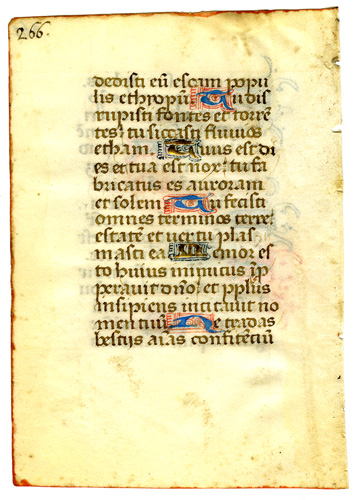 266.
dedisti eū escam popu
lis ethiopū Tu dis
rupisti fontes et torrē
tes: tu siccasti fluuios
ethan. Tuus est di
es et tua est nox: tu fa
bricatus es auroram
et solem Tu fecisti
omnes terminos terre:
estatē et uer tu plas
masti ea Memor es
to huius inimicus īp
perauit dn̄o: et ppl̄us
insipiens incitauit no
men tuū Ne tradas
bestijs aīas confitētiū